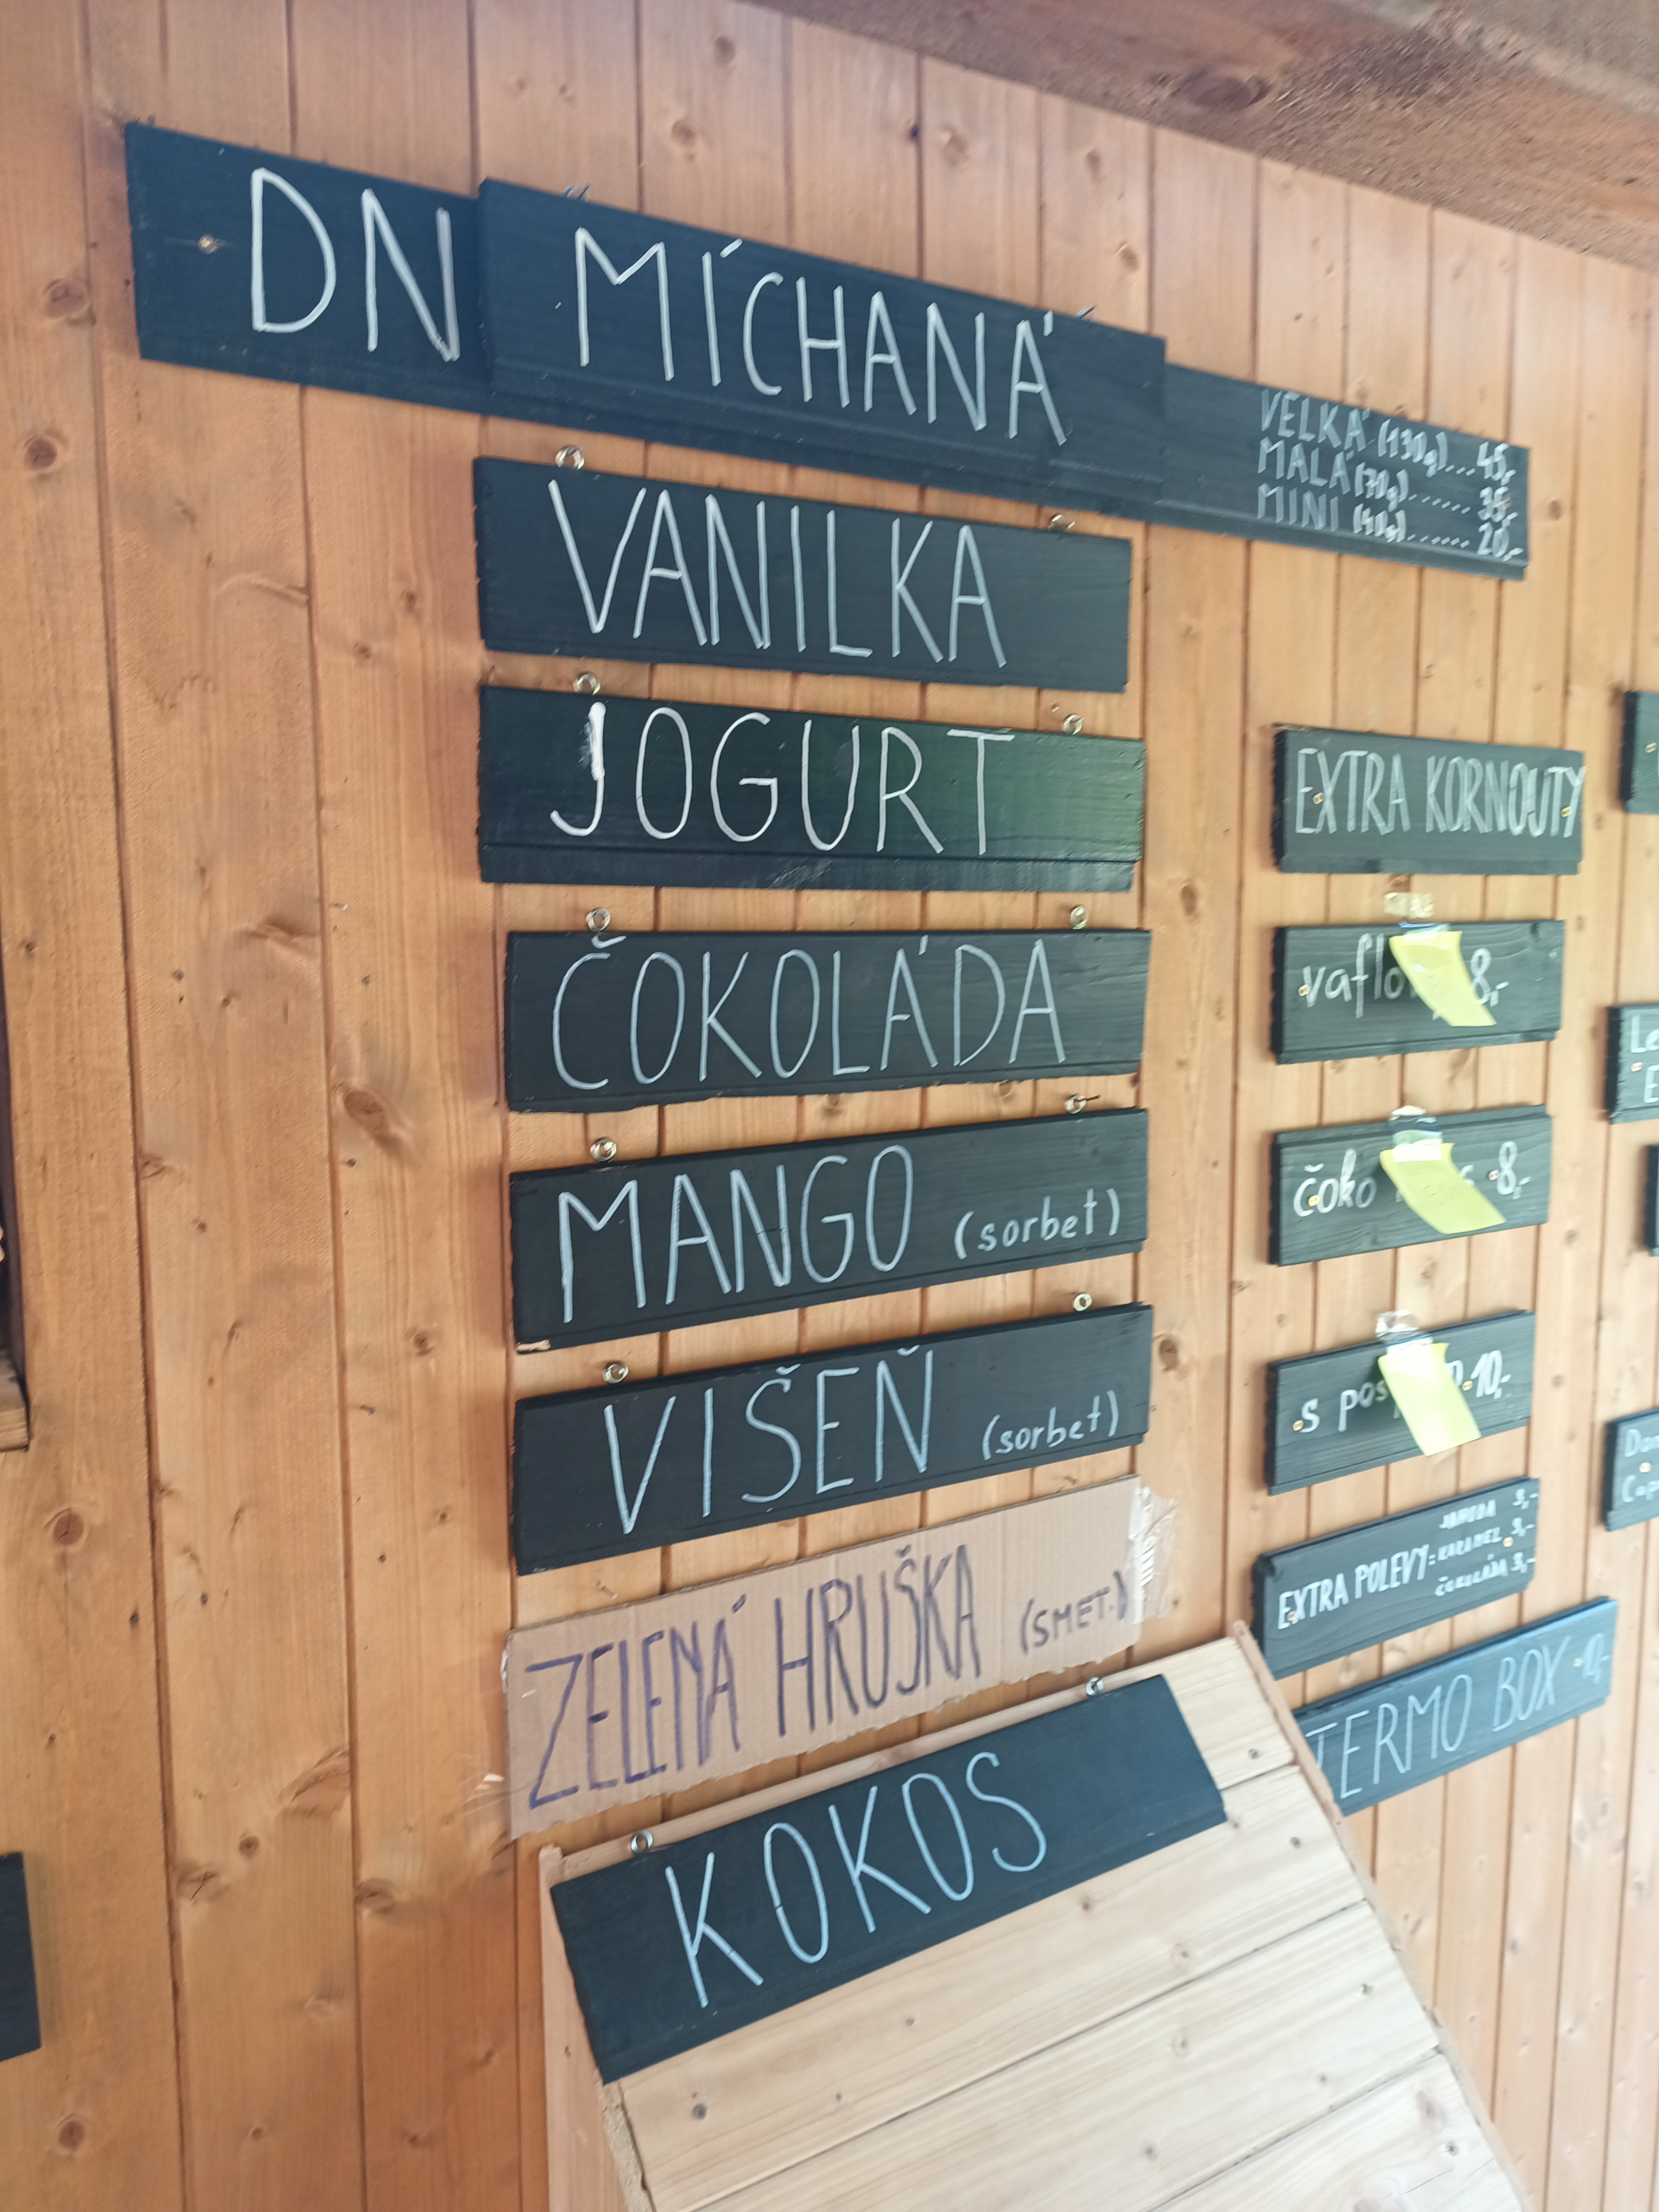 DN
MÍCHANÁ
VELKÁ (130g)... 45,-
MALÁ (70g)...... 35,-
MINI (40g)...... 20,-
VANILKA
JOGURT
ČOKOLÁDA
MANGO (sorbet)
VIŠEŇ (sorbet)
ZELENÁ HRUŠKA (SMET.)
KOKOS
EXTRA KORNOUTY
8,-
čoko 8,-
s 10,-
EXTRA POLEVY: JAHODA 3,-
KARAMEL 3,-
ČOKOLÁDA 3,-
TERMO BOX
Le
E
Cap